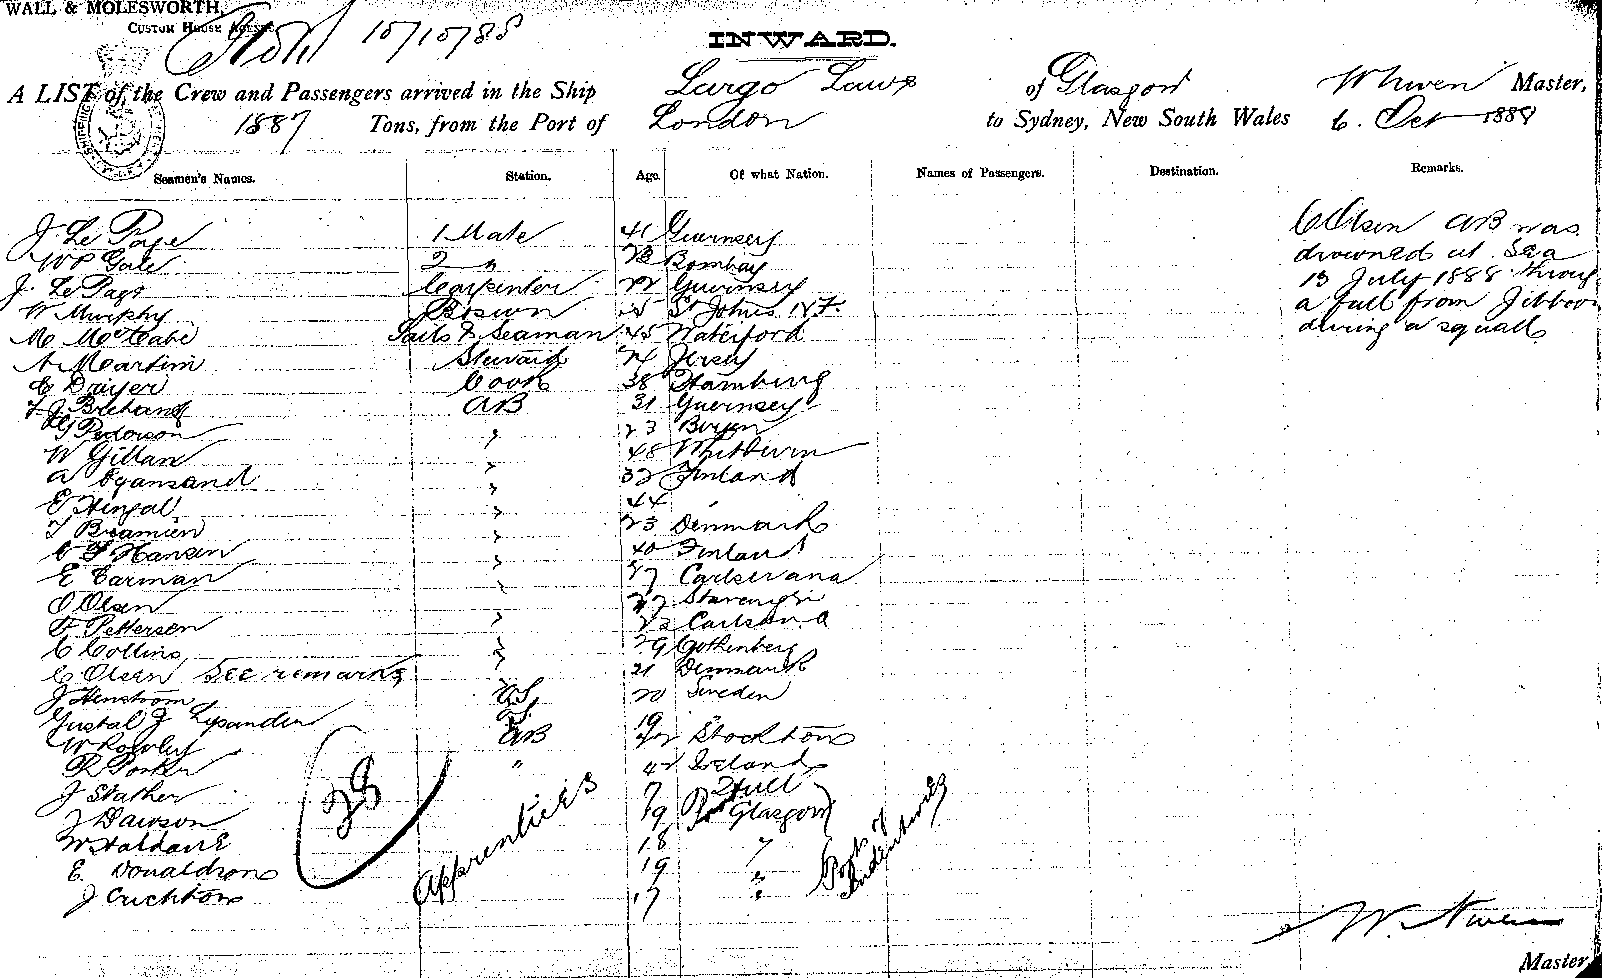 WALL & MOLESWORTH,
CUSTOM HOUSE AGENTS
15/10/88
INWARD.
A LIST of the Crew and Passengers arrived in the Ship Largo Law of Glasgow Master,
1887 Tons, from the Port of London to Sydney, New South Wales 6. Oct 1888
Seamen's Names. Station. Age Of what Nation. Names of Passengers. Destination. Remarks.
J. Le Page 1 Mate 41 Guernsey
W P Gale 2 " Bombay
J. Le Page Carpenter 22 Guernsey
W Murphy Bosun 25 St Johns N F.
M. McCabe Sails & Seaman 45 Waterford
A. Martin Steward 24 Jersey
C Dayer Cook 38 Hamburg
AB 31 Guernsey
G Pederson " 23 Bergen
W Gillan " 48 Whitburn
" 32 Finland
" 44
" 23 Denmark
C F Hansen " 40 Finland
E Carman " 27
O Olsen " 27
F Pettersen "
C Collins " 29 Gothenberg
C Olsen See remarks 21 Denmark
J Henstrom OS 20 Sweden
19
W Rowley AB 22 Stockton
R Porter " 42 Ireland
J Stather Hull
J Dawson 19 Glasgow
W Haldane 18 "
E. Donaldson 19 "
J Crichton 17 "
Apprentices
28
Ports of
C Olsen AB was
drowned at Sea
13 July 1888 through
a fall from Jibboom
during a squall
Master